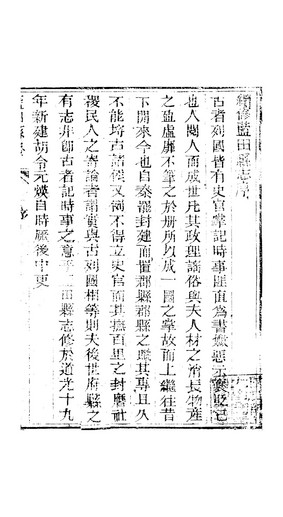 續修藍田縣志序
古者列國皆有史官掌記時事匪直為書懲惡示褒貶已
也人閱人而成世凡其政理謠俗與夫人材之消長物產
之盈虛靡不筆之於册所以成一國之掌故而上繼往昔
下開來今也自秦罷封建而置郡縣郡縣之職其專且久
不能埒古諸侯又獨不得立史官而其撫百里之封廳社
稷民人之寄論者謂實與古列國相等則夫後世府縣之
有志非卽古者記時事之意乎
田縣志修於道光十九
年新建胡合元煐自時厥後中更